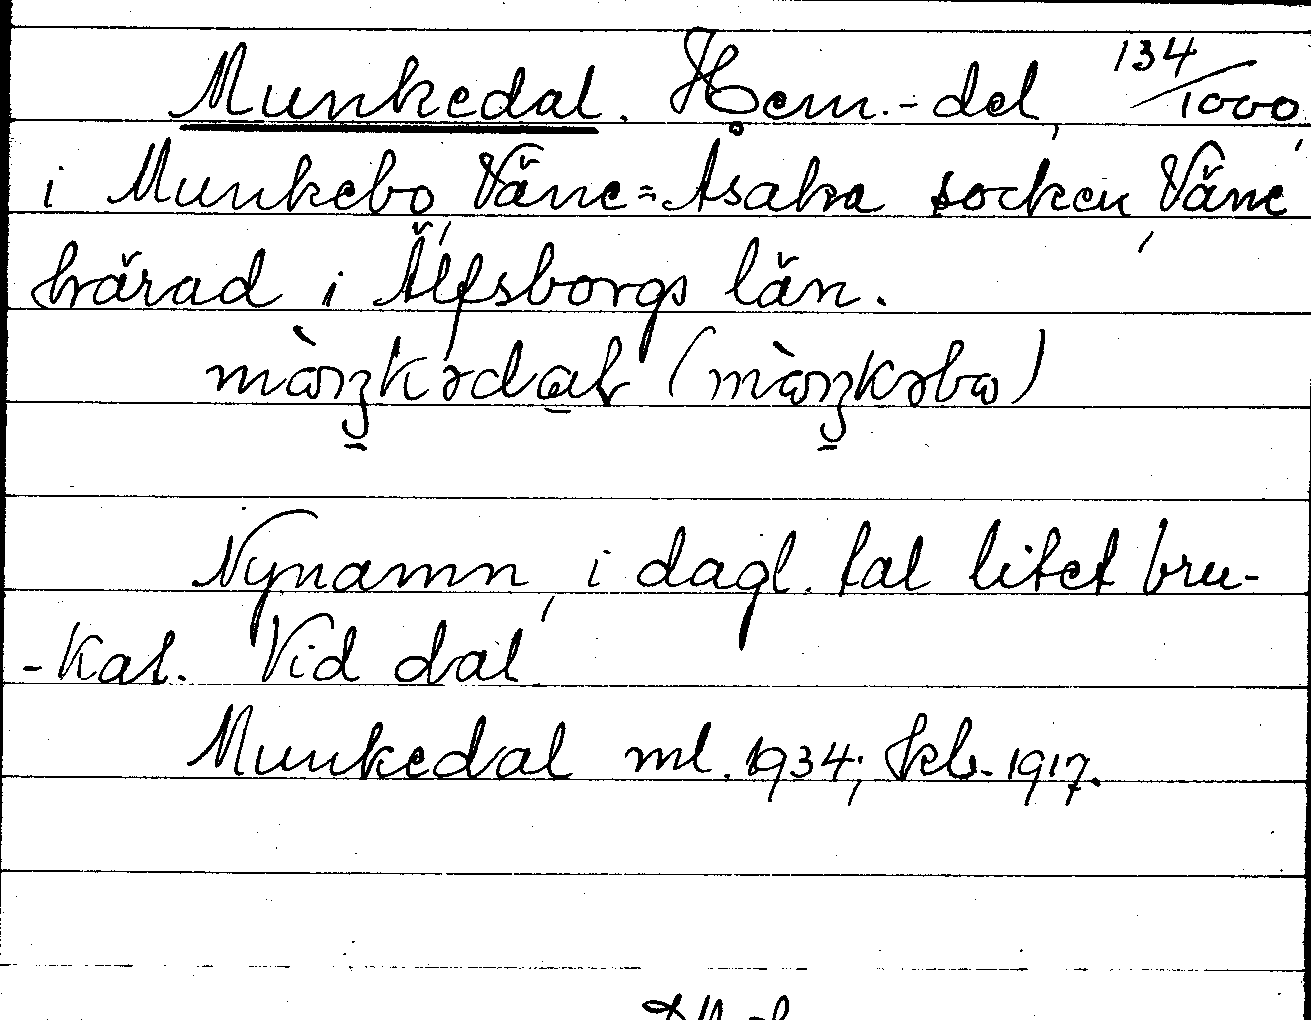 Munkedal. Hem.-del, 134/1000,
i Munkebo, Väne=Åsaka socken, Väne
härad i Älfsborgs län.
(
)
Nynamn, i dagl. tal litet bru-
-kat. Vid dal.
Munkedal ml. 1934; kb. 1917.